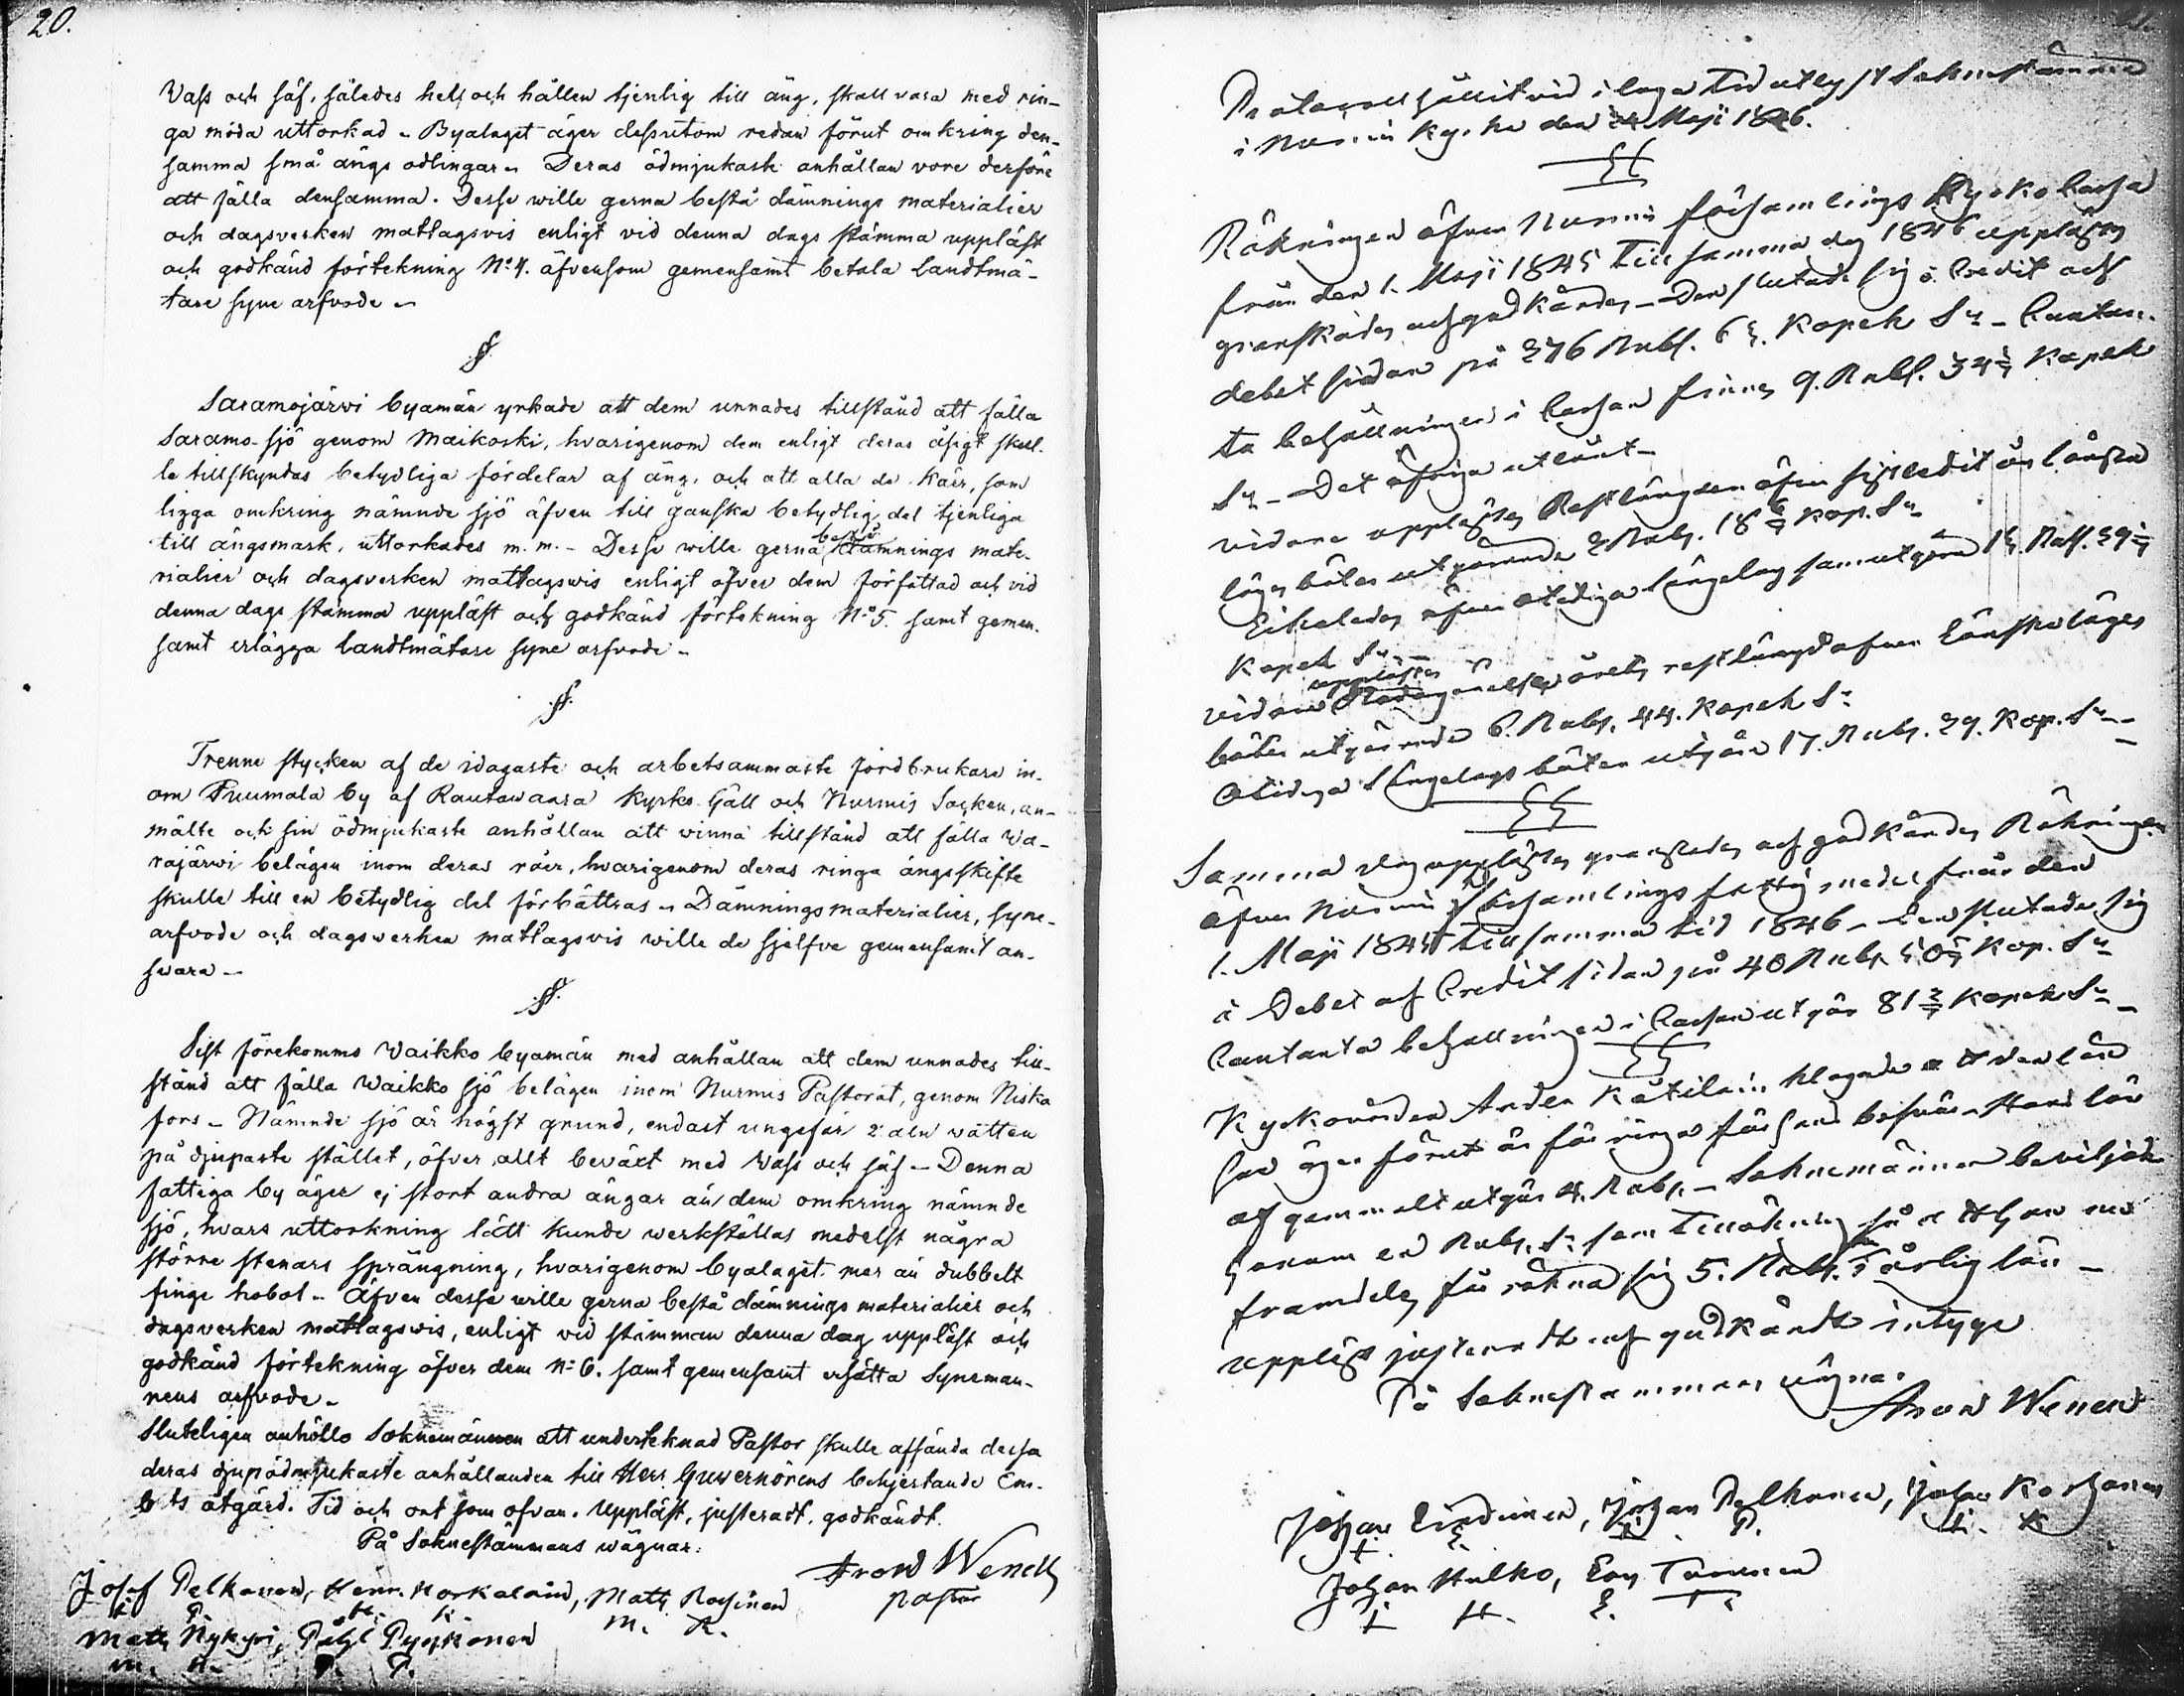 20.
Vass och säf, således helt och hållen tjenlig till äng, skall vara med rin-
ga möda uttorkad - Byalaget äger dessutom redan förut omkring den-
samma små ängs odlingar - Deras ödmjukaste anhållan vore derföre
att fälla densamma. Desse wille gerna bestå dämnings materialier
och dagsverken matlagsvis enligt vid denna dags stämma uppläst
och godkänd förtekning No 4. äfvensom gemensamt betala Landtmä-
tare syne arfvode -
§
Saramojärwi byamän yrkade att dem unnades tillstånd att fälla
Saramo-sjö genom Maikoski, hvarigenom dem enligt deras åsigt skul-
le tillskyndas betydliga fördelar af äng, och att alla de kärr, som
ligga omkring nämnde sjö äfven till ganska betydlig del tjenliga
till ängsmark, uttorkades m. m. - Desse wille gerna bestå dämnings mate-
rialier och dagsverken matlagswis enligt öfver dem författad och vid
denna dags stämma uppläst och godkänd förtekning No 5. samt gemen-
samt erlägga Landtmätare syne arfvode -
§
Trenne stycken af de idogaste och arbetsammaste jordbrukare in-
om Puumala by af Rautawaara Kyrko Gäll och Nurmis Socken, an-
mälte och sin ödmjukaste anhållan att vinna tillstånd att fälla Wa-
rajärwi belägen inom deras råer, hvarigenom deras ringa ängsskifte
skulle till en betydlig del förbättras - Dämningsmaterialier, syne-
arfvode och dagswerken matlagsvis wille de sjelfve gemensamt an-
svara -
§
Sist förekommo Waikko byamän med anhållan att dem unnades till-
stånd att fälla Waikko sjö belägen inom Nurmis Pastorat, genom Niska
fors - Nämnde sjö är högst grund, endast ungefär 2 aln vatten
på djupaste stället, öfver allt beväxt med Vass och säf - Denna
fattiga by äger ej stort andra ängar än dem omkring nämnde
sjö, hvars uttorkning lätt kunde werkställas medelst några
större stenars sprängning, hvarigenom byalaget mer än dubbelt
finge hobol - Äfven desse wille gerna bestå dämnings materialier och
dagsverken matlagswis, enligt vid stämman denna dag uppläst och
godkänd förtekning öfver dem No 6. samt gemensamt ersätta Syneman-
nens arfvode -
Sluteligen anhöllo Soknemännen att undertecknad Pastor skulle afsända dessa
deras djupödmjukaste anhållanden till Herr Guvernörens behjertande Em-
b ts åtgärd. Tid och ort som ofvan. Uppläst, justeradt, godkändt.
På Soknestämmans wägnar:
Aron Wenell
Pastor
Josef Pelkonen, Henr. Korkalain, Matts Rossinen
P. H. K. M. R.
Matts Nykyri, Påhl Pyykönen
M. N. P. P.
Protocoll hållit vid i laga tid utlyst Soknestämma
i Nurmis Kyrka den Maji 1846.
§
Räkningen öfver Nurmis församlings Kyrko Cassa
från den 1. Maji 1845 till samma dag 1846 upplästes
granskades och godkändes - Den slutade sig å Credit och
debet sidan på 276 Rubl. Kopek Sr - Contan-
ta behållningen i Cassan finnes 9. Rubl. 34 Kopek
Sr - Det öfriga utlånt -
vidare upplästes Restlängden öfver
böter utgörande 2 Rub. 18 Kop. Sr
Kopek Sr. -
vidare upplästes restlängd öfver
böter utgörande 6. Rub. 44. Kopek Sr
böter utgöra 17. Rub. 29. Kop. Sr -
§§
Samma dag upplästes granskades och godkändes Räkningen
öfver Nurmis Församlings fattig medel från den
1. Maji 1845 till samma tid 1846 - Den slutade sig
å Debet och Credit sidan på 40 Rub. Kop. Sr
Contanta behållningen i Cassan utgör 81 Kopek Sr -
§§
Kyrkovärden Anders Kätilain klagade att den lön
han äger förut är för ringa för hans besvär - Hans lön
af gammalt utgör 4. Rub. - Soknemännen beviljade
honom en Rub. Sr som tillökning så att han nu
framdeles får räkna sig 5. Rub. Sr årlig lön -
Uppläst justeradt och godkändt intyga
På Soknestämmans wägnar
Aron Wenell
Johan, Johan Pelkonen, Johan Korhonen
P. K
Johan Hulko, Tuunen
H. T.